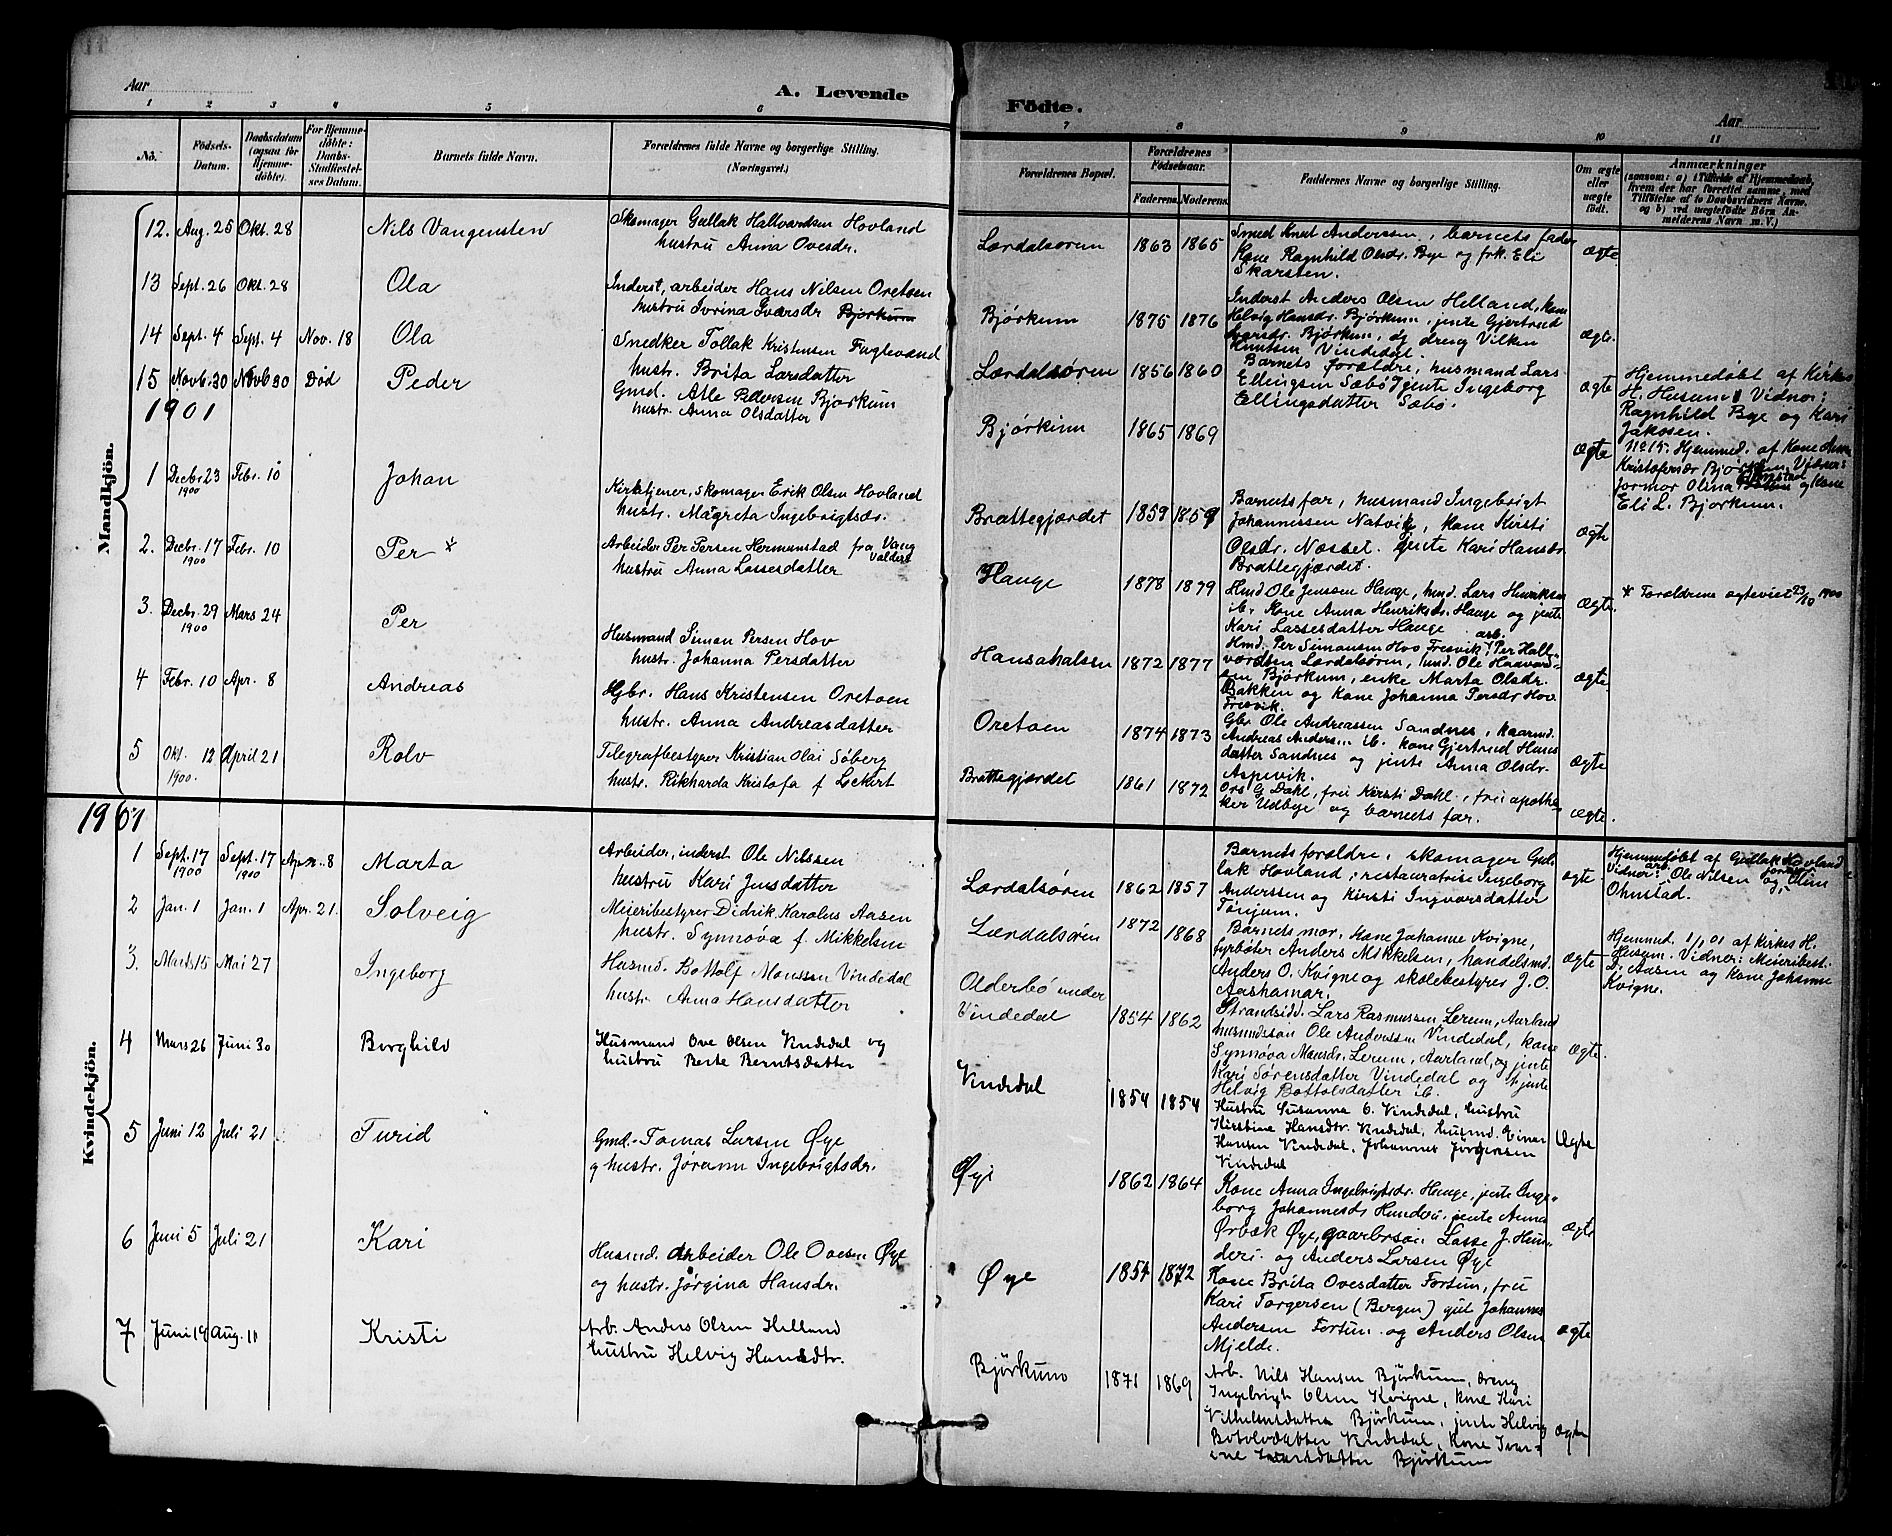 Aar
A. Levende
Födte.
Aar
1 2 3 4 5 6 7 8 9 10 11
No.
Födsels-Datum.
Daabsdatum (ogsaa for Hjemme-döbte).
For Hjemme-döbte: Daabs-Stadfæstel-ses Datum.
Barnets fulde Navn.
Forældrenes fulde Navne og borgerlige Stilling. (Næringsvei.)
Forældrenes Bopæl.
Forældrenes Födselsaar.
Faderens. Moderens.
Faddernes Navne og borgerlige Stilling.
Om ægte eller uægte födt.
Anmærkninger
(saasom: a) i Tilfælde af Hjemmedaab, hvem der har forrettet samme, med Tilföielse af to Daabsvidners Navne, og b) ved uægtefödte Börn An-melderens Navn m. V.)
Mandkjön.
12. Aug. 25 Okt. 28
Nils Vangensten
Skomager Gullak Hallvardsen Hovland
hustru Anna Ovesdr.
Lærdalsøren 1863 1865
Smed Knut Anderssen, barnets fader
Kone Ragnhild Olsdr. Bye og frk. Eli
Skarsten.
ægte
13 Sept. 26 Okt. 28
Ola
Inderst, arbeider Hans Nilsen Oretoen
hustru Ivrina Iversdr Bjørkum
Bjørkum 1875 1876
Inderst Anders Olsen Helland, kone
Helvig Hansdr. Bjørkum, jente Gjertrud
Iversdr. Bjørkum, og dreng Vilken
Knutsen Vindedal.
ægte.
14 Sept. 4 Sept. 4 Nov. 18
Ola
Snedker Tollak Kristensen Fuglevand
hustr. Brita Larsdatter
Lærdalsøren 1856 1860
Barnets forældre, husmand Lars
Ellingsen Sæbø, jente Ingeborg
Ellingsdatter Sæbø.
ægte
Hjemmedøbt af Kirkes.
H. Husum. Vidner:
Ragnhild Bye og Kari
Jakosen.
15 Novb. 30 Novb 30 Død
Peder
Gmd. Atle Pedersen Bjørkum
hustr. Anna Olsdatter
Bjørkum 1865 1869
ægte
No 15. Hjemmed. af Kone Anna
Kristofersdr Bjørkum. Vidner:
Jormor Olina og Kone
Eli L. Bjørkum.
1901
1 Decbr. 23 1900 Febr. 10
Johan
Kirketjener, Skomager Erik Olsen Hovland
hustr. Magreta Ingebrigtsdr.
Brattegjærdet 1859 1859
Barnets far, husmand Ingebrigt
Johannessen Natvik, kone Kirsti
Olsdr. Næsset. jente Kari Hansdr
Brattegjærdet.
ægte
2. Decbr. 17 1900 Febr. 10
Per *
Arbeider Per Persen Hermunstad fra Vang
Valdres
hustru Anna Lassesdatter
Hauge 1878 1879
Hmd Ole Jenssen Hauge, hmd. Lars Henriksen
ib. Kone Anna Henriksdr. Hauge og jente
Kari Lassesdatter Hauge
ægte.
* Forældrene ægteviet 23/10 1900
3. Decbr. 29 1900 Mars 24
Per
Husmand Simon Persen Hov
hustr. Johanna Persdatter
Hansahalsen 1872 1877
Hmd. Per Simonsen Hov Fresvik, arb. Per Hall-
vordsen Lærdalsøren, hmd. Ole Haavard-
sen Bjørkum, enke Marta Olsdr.
Bakken og Kone Johanna Persdr Hov
Fresvik.
ægte.
4 Febr. 10 Apr. 8
Andreas
Gbr. Hans Kristensen Oretoen
hustr. Anna Andreasdatter
Oretoen 1874 1873
Gbr. Ole Andreassen Sandnes, kaarmd.
Andreas Anders... ib. kone Gjertrud Hans-
datter Sandnes og jente Anna Olsdr.
Aspevik.
ægte
5 Okt. 12 1900. April 21
Rolv
Telegrafbestyrer Kristian Olai Søberg
hustr. Rikharda Kristofa f. Leckert
Brattegjærdet 1861 1872
Ors. G Dahl, fru Kirsti Dahl, fru apothe-
ker Udbye og barnets far.
ægte.
Kvindekjön.
1901
1 Sept. 17 1900 Sept. 17 1900 Apr. 8
Marta
Arbeider, inderst Ole Nilssen
hustru Kari Jensdatter
Lærdalsøren 1862 1857
Barnets forældre, skomager Gul-
lak Hovland, restauratrise Ingeborg
Anderssen og Kirsti Ingvarsdatter
Tønjum.
ægte
Hjemmedøbt af Gullak Hovland
Vidner: arb. Ole Nilsen og jormor Elen
Ohnstad.
2 Jan. 1 Jan. 1 Apr. 21.
Solveig
Meieribestyrer Didrik Karolus Aasen
hustr. Synnøva f. Mikkelsen
Lærdalsøren 1872 1868
Barnets mor, Kone Johanne Kvigne,
fyrbøter Anders Mikkelsen, handelsmd.
Anders O. Kvigne og skolebestyrer J. O.
Aashamar.
ægte
Hjemmd. 1/1 01 af Kirkes. H.
Husum. Vidner: Meieribest.
D. Aasen og Kone Johanne
Kvigne.
3. Mars 15 Mai 27
Ingeborg
Husmd. Bottolf Monssen Vindedal
hustr. Anna Hansdatter
Olderbø under
Vindedal 1854 1862
Strandsidd. Lars Rasmussen Lerum, Aurland
husmandsøn Ole Anderssen Vindedal, kone
Synnøva Monsdr. Lerum, Aurland, og jente
Kari Sørensdatter Vindedal og jente
Helvig Bottolsdatter ib.
ægte.
4 Mars 26 Juni 30
Borghild
Husmand Ove Olsen Vindedal og
hustru Berte Berntsdatter
Vindedal 1854 1854
Hustru Susanna O. Vindedal, hustru
Kirstine Hansdtr. Vindedal, husmd. Einar
Hansen Vindedal, Johannes Jørgensen
Vindedal
Ægte
5 Juni 12 Juli 21
Turid
Gmd. Tomas Larsen Øye
og hustr. Jørann Ingebrigtsdr.
Øye 1862 1864
Kone Anna Ingebrigtsdr. Hauge, jente Inge-
borg Johannesdr Hunderi, jente Anna
Ørbæk Øye, gaarbrson. Lasse J. Hun-
deri. og Anders Larsen Øye
ægte
6 Juni 5 Juli 21
Kari
Husmd. Arbeider Ole Ovesen Øye
og hustr. Jørgina Hansdr.
Øye 1854 1872
Kone Brita Ovesdatter Fortun, fru
Kari Torgersen (Bergen) gut Johannes
Andersen Fortun og Anders Olsen
Mjelde.
ægte
7 Juni 19 Aug. 11
Kristi
Arb. Anders Olsen Helland
hustru Helvig Hansdtr.
Bjørkum 1871 1869
Arb. Nils Hansen Bjørkum, dreng
Ingebrigt Olsen Kvigne, kone Kari
Vilhelmsdatter Bjørkum, jente Helvig
Botolvdatter Vindedal, Kone Ivar-
ine Ivarsdatter Bjørkum
ægte